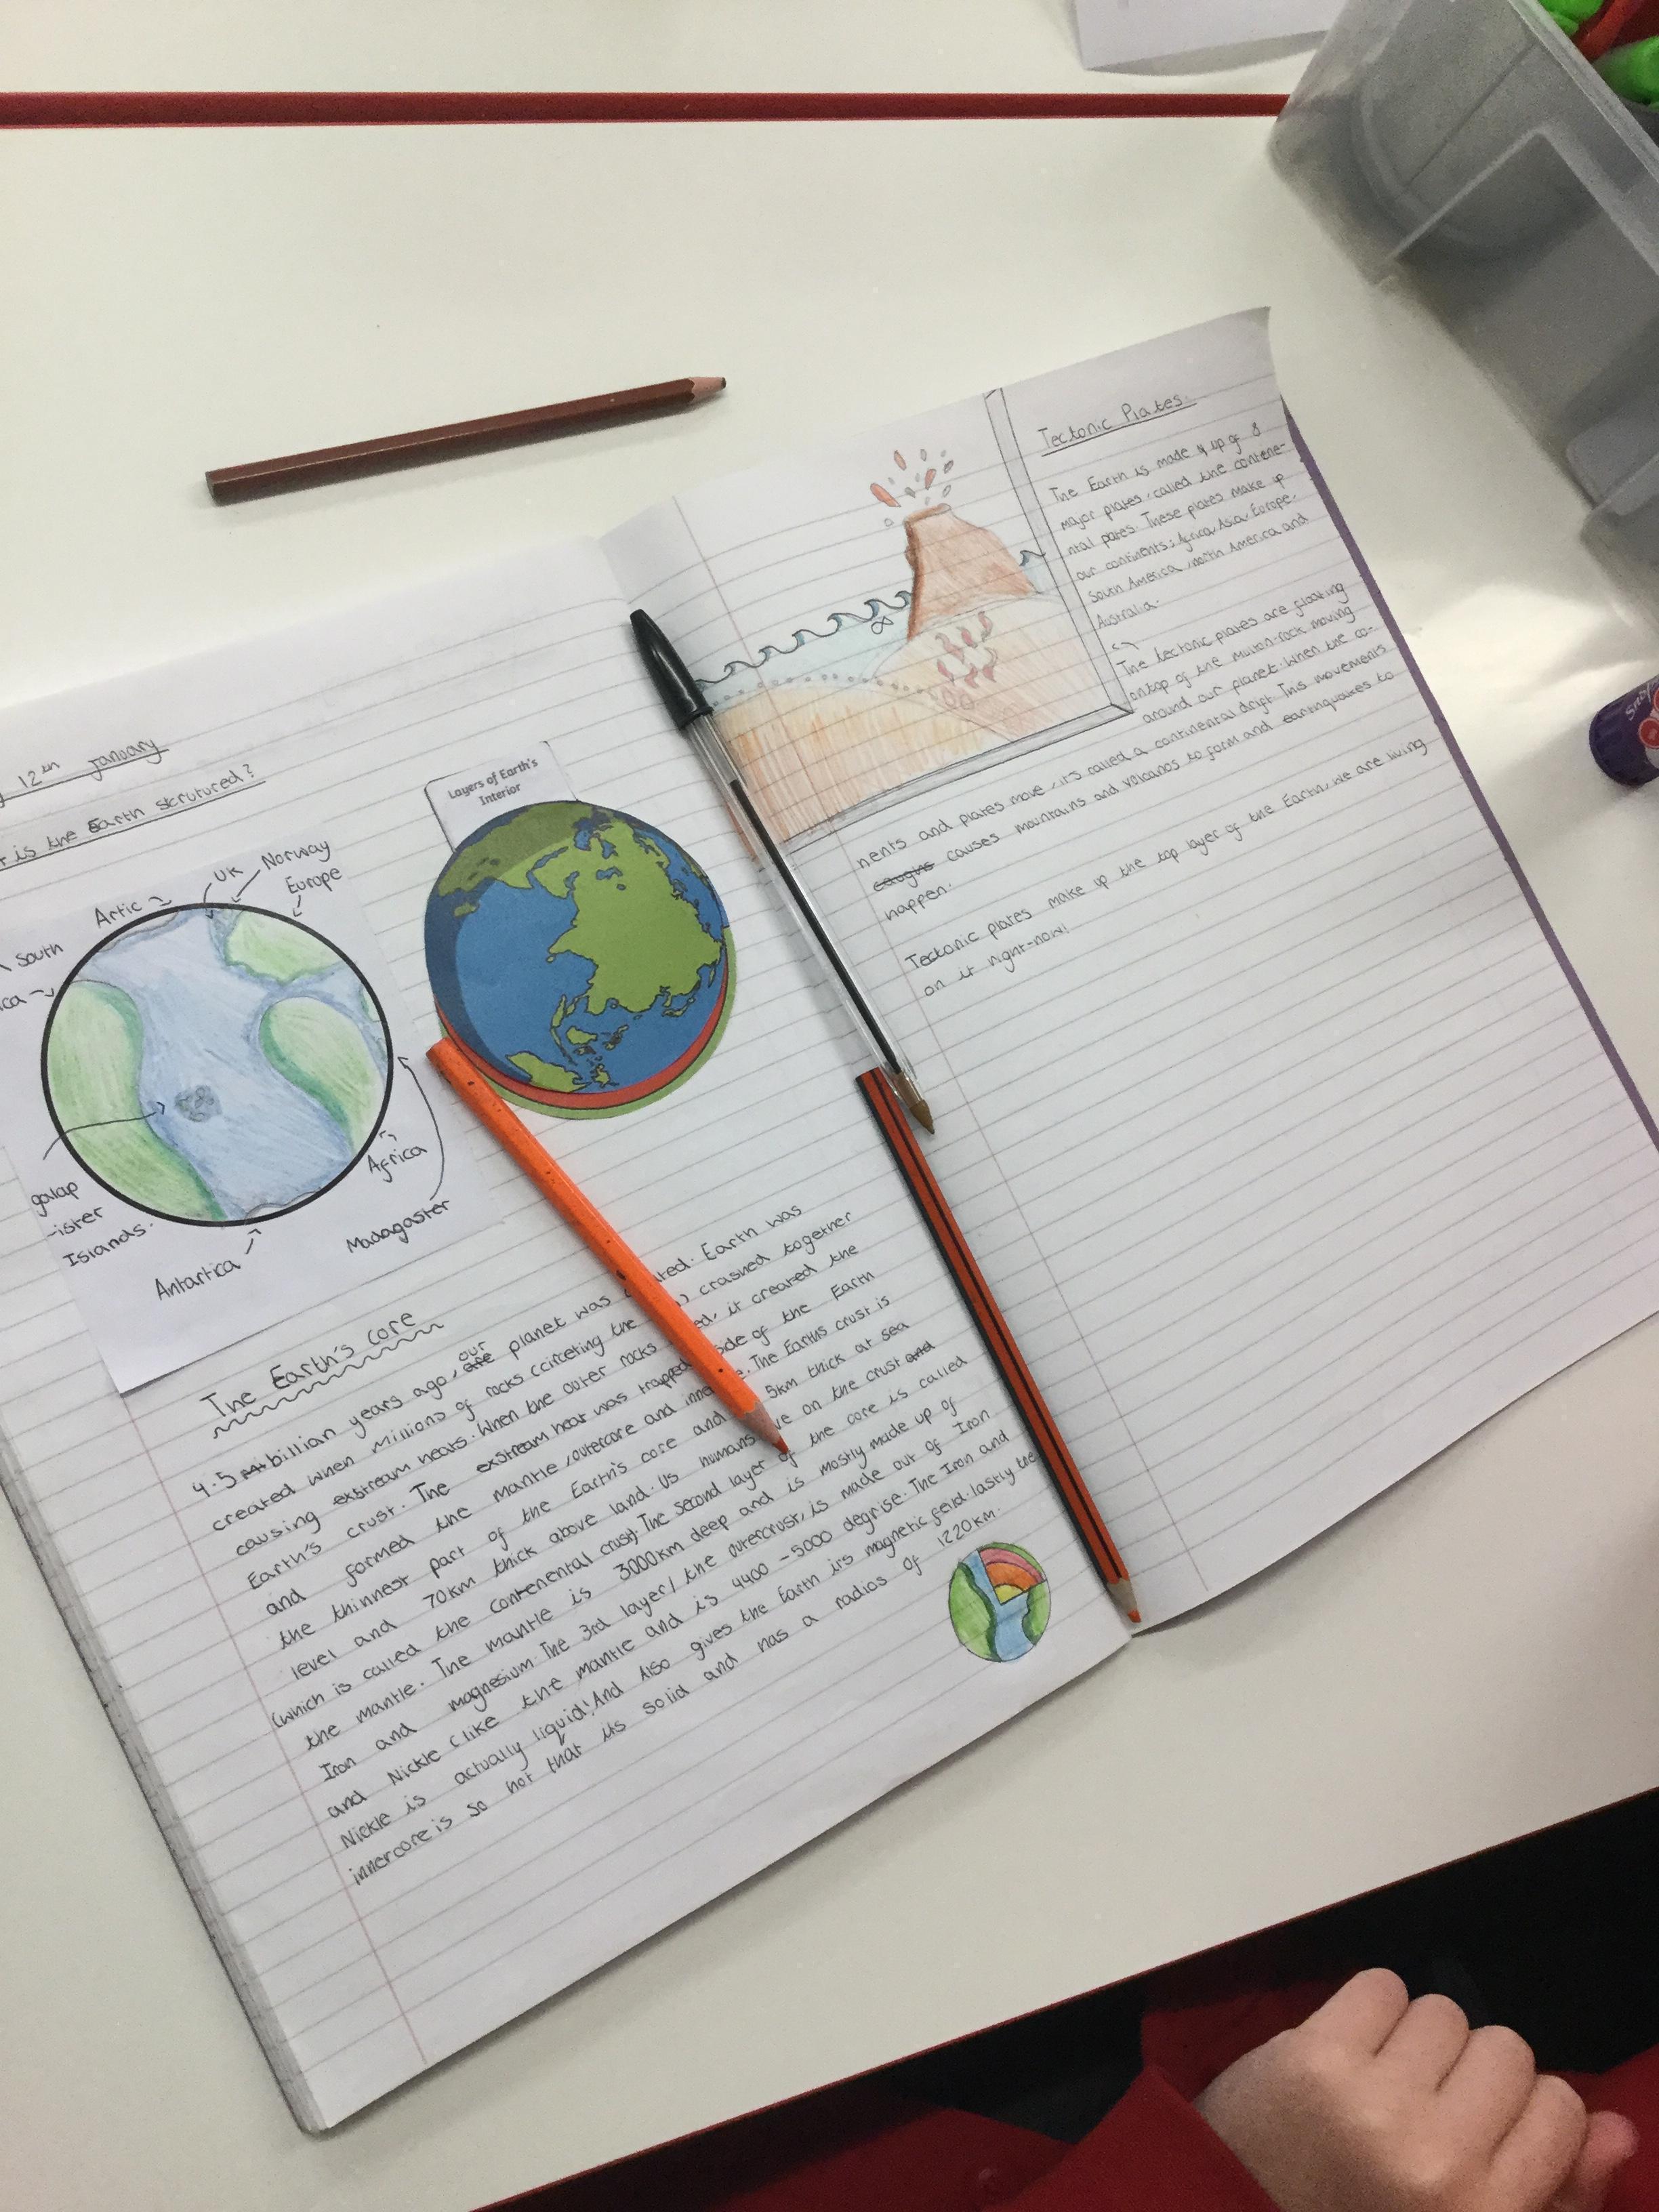 12th January
is the Earth skrutured?
Layers of Earth's
Interior
UK
Norway
Europe
Artic
South
ica
galap
-ister
Islands.
Antartica
Africa
Madagaster
The Earth's core
4.5 billian years ago, our planet was ated. Earth was
created when millions of rocks (circeling the ) crashed together
causing exstream heats. When the outer rocks ed, it created the
Earth's crust. The exstream heat was trapped side of the Earth
and formed the mantle, outercore and inne e. The Earths crust is
the thinnest part of the Earth's core and 5km thick at sea
level and 70km thick above land. Us humans ve on the crust and
(which is called the contenental crust). The second layer of the core is called
the mantle. The mantle is 3000km deep and is mostly made up of
Iron and magnesium. The 3rd layer, the outercrust, is made out of Iron
and Nickle (like the mantle and is 4400-5000 degrise. The Iron and
Nickle is actually liquid! And Also gives the Earth its magnetic feild. lastly the
innercore is so hot that its solid and has a radios of 1220km.
Tectonic Plates.
The Earth is made up of 8
major plates, called the contene-
ntal pates. These plates make up
our continents: Africa, Asia, Europe,
South America, north America and
Australia.
The tectonic plates are floating
ontop of the multon-rock moving
around our planet. When the co-
nents and plates move, it's called a continental drift. This movements
caughs causes mountains and volcanos to form and earthquakes to
happen.
Tectonic plates make up the top layer of the Earth, we are living
on it right-now!